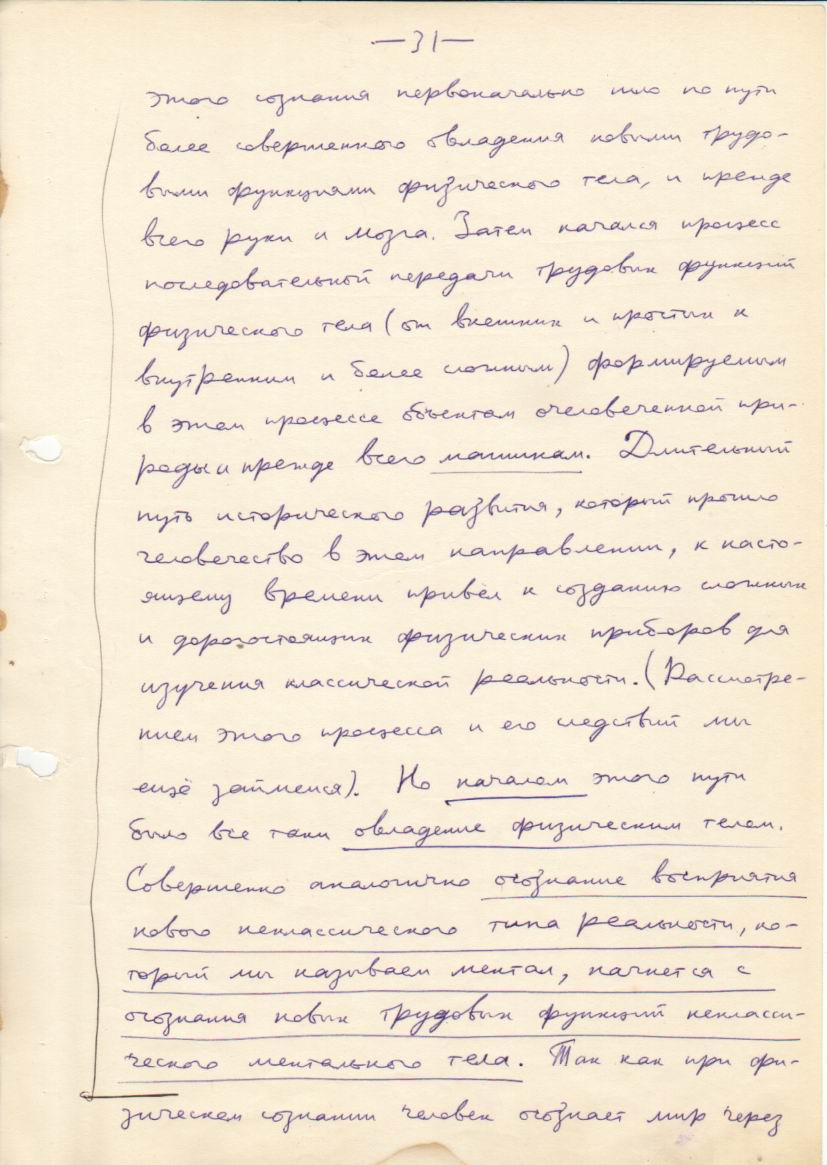 —31—
этого сознания первоначально шло по пути
более совершенного овладения новыми трудо-
выми функциями физического тела, и прежде
всего руки и мозга. Затем начался процесс
последовательной передачи трудовых функций
физического тела (от внешних и простых к
внутренним и более сложным) формируемым
в этом процессе объектам очеловеченной при-
роды и прежде всего машинам. Длительный
путь исторического развития, который прошло
человечество в этом направлении, к насто-
ящему времени привёл к созданию сложных
и дорогостоящих физических приборов для
изучения классической реальности. (Рассмотре-
нием этого процесса и его следствий мы
ещё займемся). Но началом этого пути
было все таки овладение физическим телом.
Совершенно аналогично осознание восприятия
нового неклассического типа реальности, ко-
торый мы называем ментал, начнется с
осознания новых трудовых функций некласси-
ческого ментального тела. Так как при фи-
зическом сознании человек осознает мир через